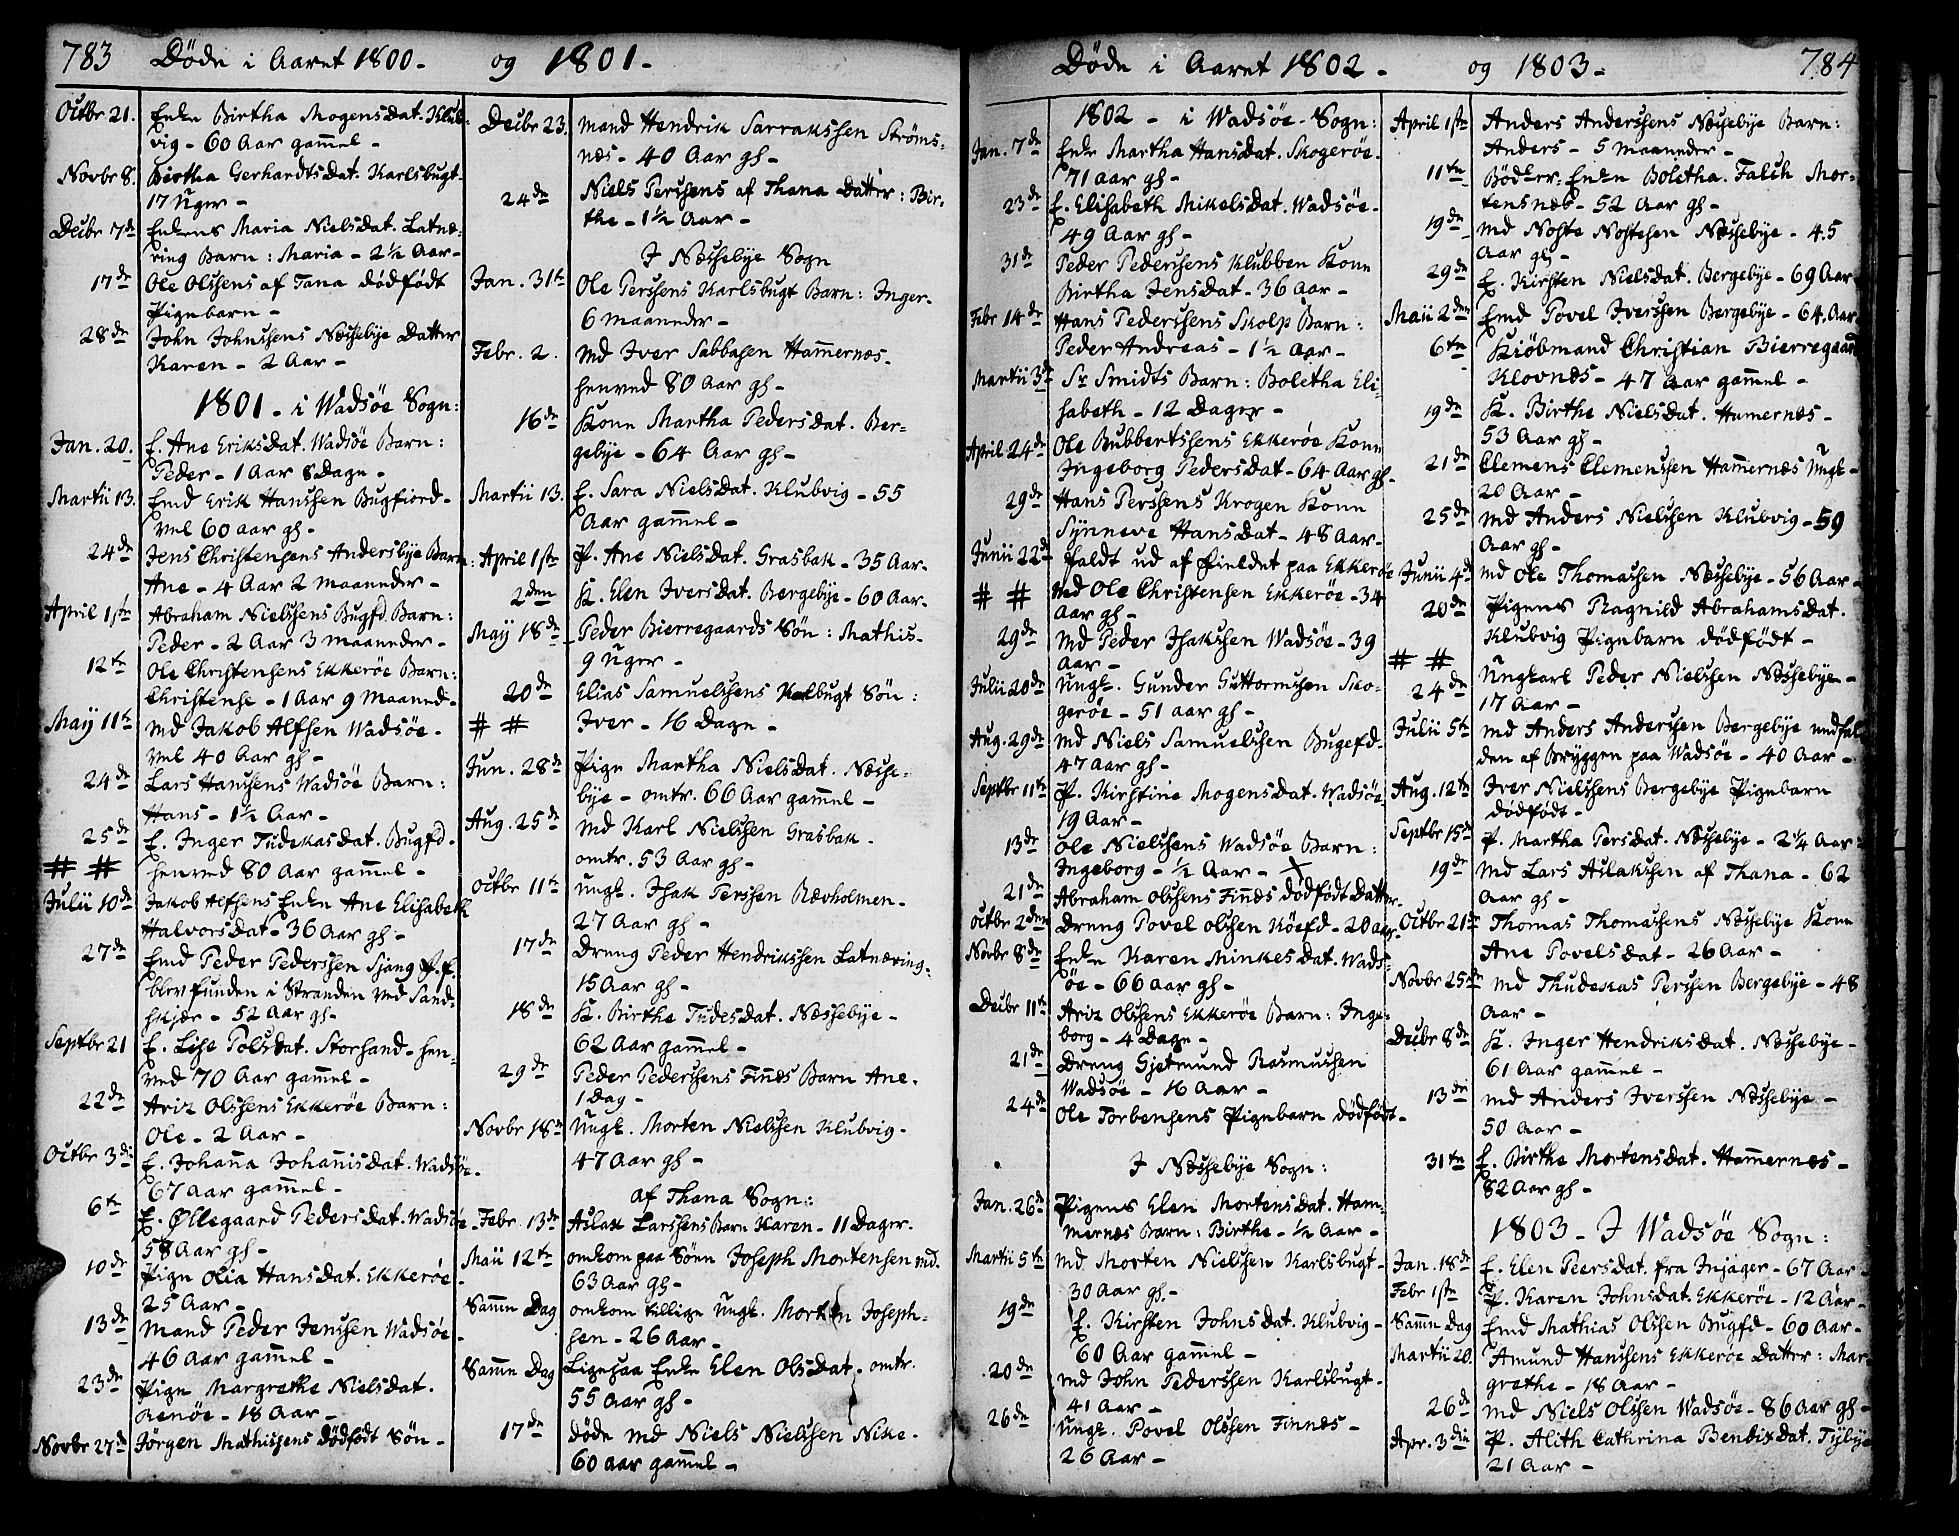 783 Døde i Aaret 1800 - og 1801 -
Octbr 21. Enke Birtha Mogensdat. Klub-
vig - 60 Aar gam̄el -
Novbr 8. Birtha Gerhardtsdat. Karlsbugt.
17 Uger -
Decbr 7de Enkens Maria Nielsdat. Latnæ-
ring Barn: Maria - 2½ Aar -
17de Ole Olsens af Tana dødfødt
Pigebarn -
28de John Johnsens Næssebÿe Datter
Karen - 2 Aar -
1801 - i Wadsøe Sogn:
Jan. 20. E. Ane Eriksdat. Wadsøe Barn:
Peder - 1 Aar 8 Dage -
Martii 13. Emd Erik Hanssen Bugfiord -
vel 60 aar gl -
24de Jens Christensens Andersbÿe Barn:
Ane - 4 Aar 2 Maaneder -
April 1ste Abraham Nielssens Bugfd Barn:
Peder - 2 Aar 3 maaneder -
12te Ole Christensens Ekkerøe Barn:
Christense - 1 Aar 9 Maaned -
Maÿ 11te Md Jakob Alfsen Wadsøe -
vel 40 Aar gl -
24de Lars Hanssens Wadsøe Barn:
Hans - 1½ Aar -
25de E. Inger Tudekasdat. Bugfd -
# # henved 80 Aar gam̄el -
Julii 10de Jakob Alfsens Enke Ane Elisabeth
Halvorsdat - 36 Aar gl -
27de Emd Peder Pederssen Sjang P. f.
blev funden i Stranden ved Sand-
skjær - 52 Aar gl -
Septbr 21 E. Lise Polsdat. Storsand - hen-
ved 70 Aar gam̄el -
22de Ariz Olssens Ekkerøe Barn:
Ole - 2 Aar -
Octbr 3die E. Johan̄a Johan̄isdat. Wadsøe -
67 Aar gam̄el -
6te E. Øllegaard Pedersdat. Wadsøe
58 Aar gl -
10de Pige Olia Hansdat. Ekkerøe -
25 Aar -
13de Mand Peder Jenssen Wadsøe -
46 Aar gam̄el -
23de Pige Margrethe Nielsdat.
Renøe - 18 Aar -
Novbr 27de Jørgen Mathissens dødfødt Søn -
Decbr 23. Mand Hendrik Sarrakssen Strøms-
næs - 40 Aar gl -
24de Niels Perssens af Thana Datter: Bir-
the - 1½ Aar -
I Næssebÿe Sogn
Jan. 31te Ole Perssens Karlsbugt Barn: Inger -
6 maaneder -
Febr. 2. Md Iver Sabbasen Ham̄ernæs -
henved 80 Aar gl -
16de Kone Martha Pedersdat. Ber-
gebÿe - 64 Aar gl -
Martii 13. E. Sara Nielsdat. Klubvig - 55
Aar gam̄el -
April 1ste P. Ane Nielsdat. Grasbak - 35 Aar -
2den K. Elen Iversdat. Bergebÿe - 60 Aar -
Maÿ 18de Peder Bierregaards Søn: Mathis -
9 Uger -
20de Elias Samuelssens Kalbugt Søn:
# # Iver - 16 Dage -
Jun. 28de Pige Martha Nielsdat. Næsse-
bÿe - omtr. 66 Aar gam̄el -
Aug. 25de Md Karl Nielssen Grasbak -
omtr. 53 Aar gl -
Octbr 11te Ungk. Isak Perssen Rævholmen -
27 Aar gl -
17de Dreng Peder Hendrikssen Latnæring -
15 Aar gl -
18de K. Birthe Tudesdat. Næssebÿe -
62 Aar gam̄el -
29de Peder Pederssens Fin̄æs Barn Ane -
1 Dag -
Novbr 18de Ungk. Morten Nielssen Klubvig -
47 Aar gl -
Af Thana Sogn:
Febr. 13de Aslak Larssens Barn Karen - 11 Dager.
Maii 12te omkom paa Søen Joseph Mortensen md.
63 Aar gl -
Sam̄e Dag omkom tillige Ungk. Morten Joseph-
sen - 26 Aar -
Sam̄e Dag Ligesaa Enke Elen Olsdat. omtr.
55 Aar gl -
17de Døde Md Niels Nielssen Nike -
60 aar gam̄el -
Døde i Aaret 1802 - og 1803 - 784
1802 - i Wadsøe Sogn:
Jan. 7de Enke Martha Hansdat. Skogerøe -
71 aar gl -
23de E. Elisabeth Mikelsdat. Wadsøe -
49 Aar gl -
31de Peder Pederssens Klubben Kone
Birtha Jensdat - 36 Aar -
Febr 14de Hans Pederssens Skolp Barn:
Peder Andreas - 1½ Aar -
Martii 3de Sr Smidts Barn: Boletha Eli-
sabeth - 12 Dager -
April 24de Ole Bubbertssens Ekkerøe Kone
Ingeborg Pedersdat - 64 Aar gl -
29de Hans Perssens Krogen Kone
Sÿnneve Hansdat - 48 Aar -
Junii 22de faldt ud af Fieldet paa Ekkerøe
# # Md Ole Christensen Ekkerøe - 34
Aar gl -
29de Md Peder Isakssen Wadsøe - 39
Aar -
Julii 20de Ungk. Gunder Guttormssen Sko-
gerøe - 51 aar gl -
Aug. 29de Md Niels Samuelssen Bugefd -
47 Aar gl -
Septbr 11te P. Kirstine Mogensdat. Wadsøe
19 Aar -
13de Ole Nielssens Wadsøe Barn:
Ingeborg - ½ Aar -
21de Abraham Olssens Fin̄es dødfødt Datter -
Octbr 2den Dreng Povel Olssen Köefd - 20 aar -
Novbr 8de Enke Karen Minkesdat. Wads-
øe - 66 aar gl -
Decbr 11te Ariz Olssens Ekkerøe Barn: Inge-
borg - 4 Dage -
21de Dreng Gjetmund Rasmussen
Wadsøe - 16 Aar -
24de Ole Torbensens Pigebarn dødfødt -
I Næssebÿe Sogn:
Jan. 26de Pigens Elen Mortensdat. Ham̄-
mernæs Barn: Birthe - ½ Aar -
Martii 5te Md Morten Nielssen Karlsbugt -
30 Aar gl -
19de E. Kirsten Johnsdat. Klubvig -
60 Aar gam̄el -
20de Md John Pederssen Karlsbugt -
41 Aar -
26de Ungk. Povel Olssen Finnæs -
26 Aar -
April 1ste Anders Anderssens Næssebÿe Barn:
Anders - 5 Maaneder -
11te Bödker-Enke Boletha Falch Mor-
tensnæs - 52 Aar gl -
19de Md Noste Nostesen Næssebÿe - 45
Aar gl -
29de E. Kirsten Nielsdat. Bergebÿe - 69 Aar -
Maii 2den Emd Povel Iverssen Bergebÿe - 64 Aar -
6te Kiöbmand Christian Bierregaard
Klovnæs - 47 Aar gam̄el -
19de K. Birthe Nielsdat. Hamernæs -
53 Aar gl -
21de Clemens Clemenssen Ham̄ernæs Ungk -
20 Aar -
25de Md Anders Nielssen Klubvig - 59
Aar gl -
Junii 4de Md Ole Thomassen Næssebÿe - 56 Aar -
20de Pigens Ragnild Abrahamsdat.
Klubvig Pigebarn dødfødt -
# # Ungkarl Peder Nielssen Næssebÿe -
24de 17 Aar -
Julii 5te Md Anders Anderssen Bergebÿe nedfal-
den af Brÿggen paa Wadsøe - 40 Aar -
Aug. 12te Iver Nielssens Bergebÿe Pigebarn
dødfødt -
Septbr 15de P. Martha Persdat. Næssebÿe - 2¼ Aar -
19de Md Lars Aslakssen af Thana - 62
Aar gl -
Octbr 21de Thomas Thomassens Næssebÿe Kone
Ane Povelsdat - 26 Aar -
Novbr 25de Md Thudekas Perssen Bergebÿe - 48
Aar -
Decbr 8de K. Inger Hendriksdat. Næssebÿe -
61 Aar gam̄el -
13de Md Anders Iverssen Næssebÿe -
50 Aar -
31te E. Birthe Mortensdat. Ham̄ernæs -
82 Aar gl -
1803 - I Wadsøe Sogn:
Jan. 18de E. Elen Peersdat. fra Injager - 67 Aar -
Febr 1ste P. Karen Johnsdat. Ekkerøe - 12 Aar -
Sam̄e Dag Emd Mathias Olssen Bugfd - 60 Aar -
Martii 20. Amund Hanssens Ekkerøe Datter: Mar-
grethe - 18 Aar -
26de Md Niels Olssen Wadsøe - 86 Aar gl -
Apr. 3die P. Alith Cathrina Bendixdat. Tÿbÿe
21 Aar -